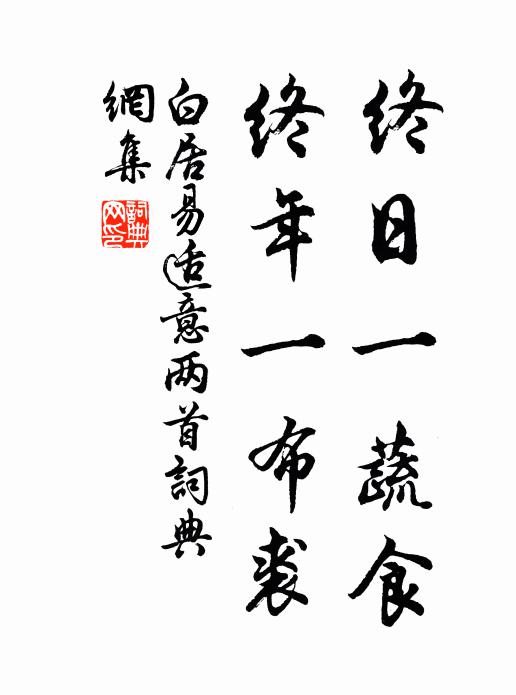 終日一蔬食
終年一布裘
白居易适意两首詞典
網集
詞典
网印